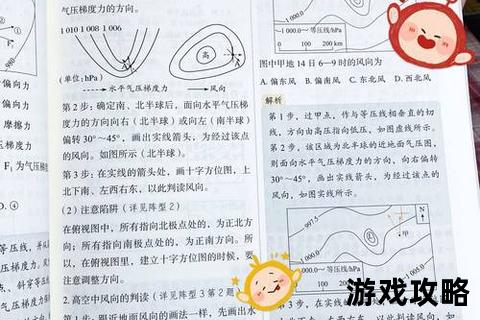 偏向力
偏向力
摩擦力
F₁ 为气压梯度
D. ④
气压梯度力的方向。
1 010 1 008 1 006
高
(单位:hPa)
水平气压梯度力
风向
第 2 步:确定南、北半球后,面向水平气压梯
度力的方向向右(北半球)或向左(南半球)
偏转 30°~45°,画出实线箭头,即为经过该点
的风向。如图所示(北半球)。
第 3 步:在实线的箭头处,画十字方位图,上
北下南、左西右东,以此判读风向。
(2) 注意陷阱(详见阵型 2)
在俯视图中,所有指向北极点处的,为正北方
向;所有指向南极点处的,为正南方向。所
以,在俯视图里,建立十字方位图的时候,要
注意调整方向。
2. 高空中风向的判读(详见阵型 3 第 2 题
第 1 步:跟近地面风向的画法一样,先画出水
1 000.0
等压线/hPa
0 100 200 km
图中甲地 14 日 6—9 时的风向为
A. 偏东风 B. 偏南风 C. 东北风 D. 西北风
解析
第 1 步,过甲点,作与等压线相垂直的切
线,方向由高压指向低压,如图虚线所示。
第 2 步,该区域为北半球的近地面气压图,
则面向水平气压梯度力的方向,向右偏转
30°~45°,画出实线箭头,为经过该点的风
向,如图实线所示。
997.5
N
甲
1 000.0
等压线/hPa
0 100 200 km
第 3 步,在实线的箭
游戏攻略